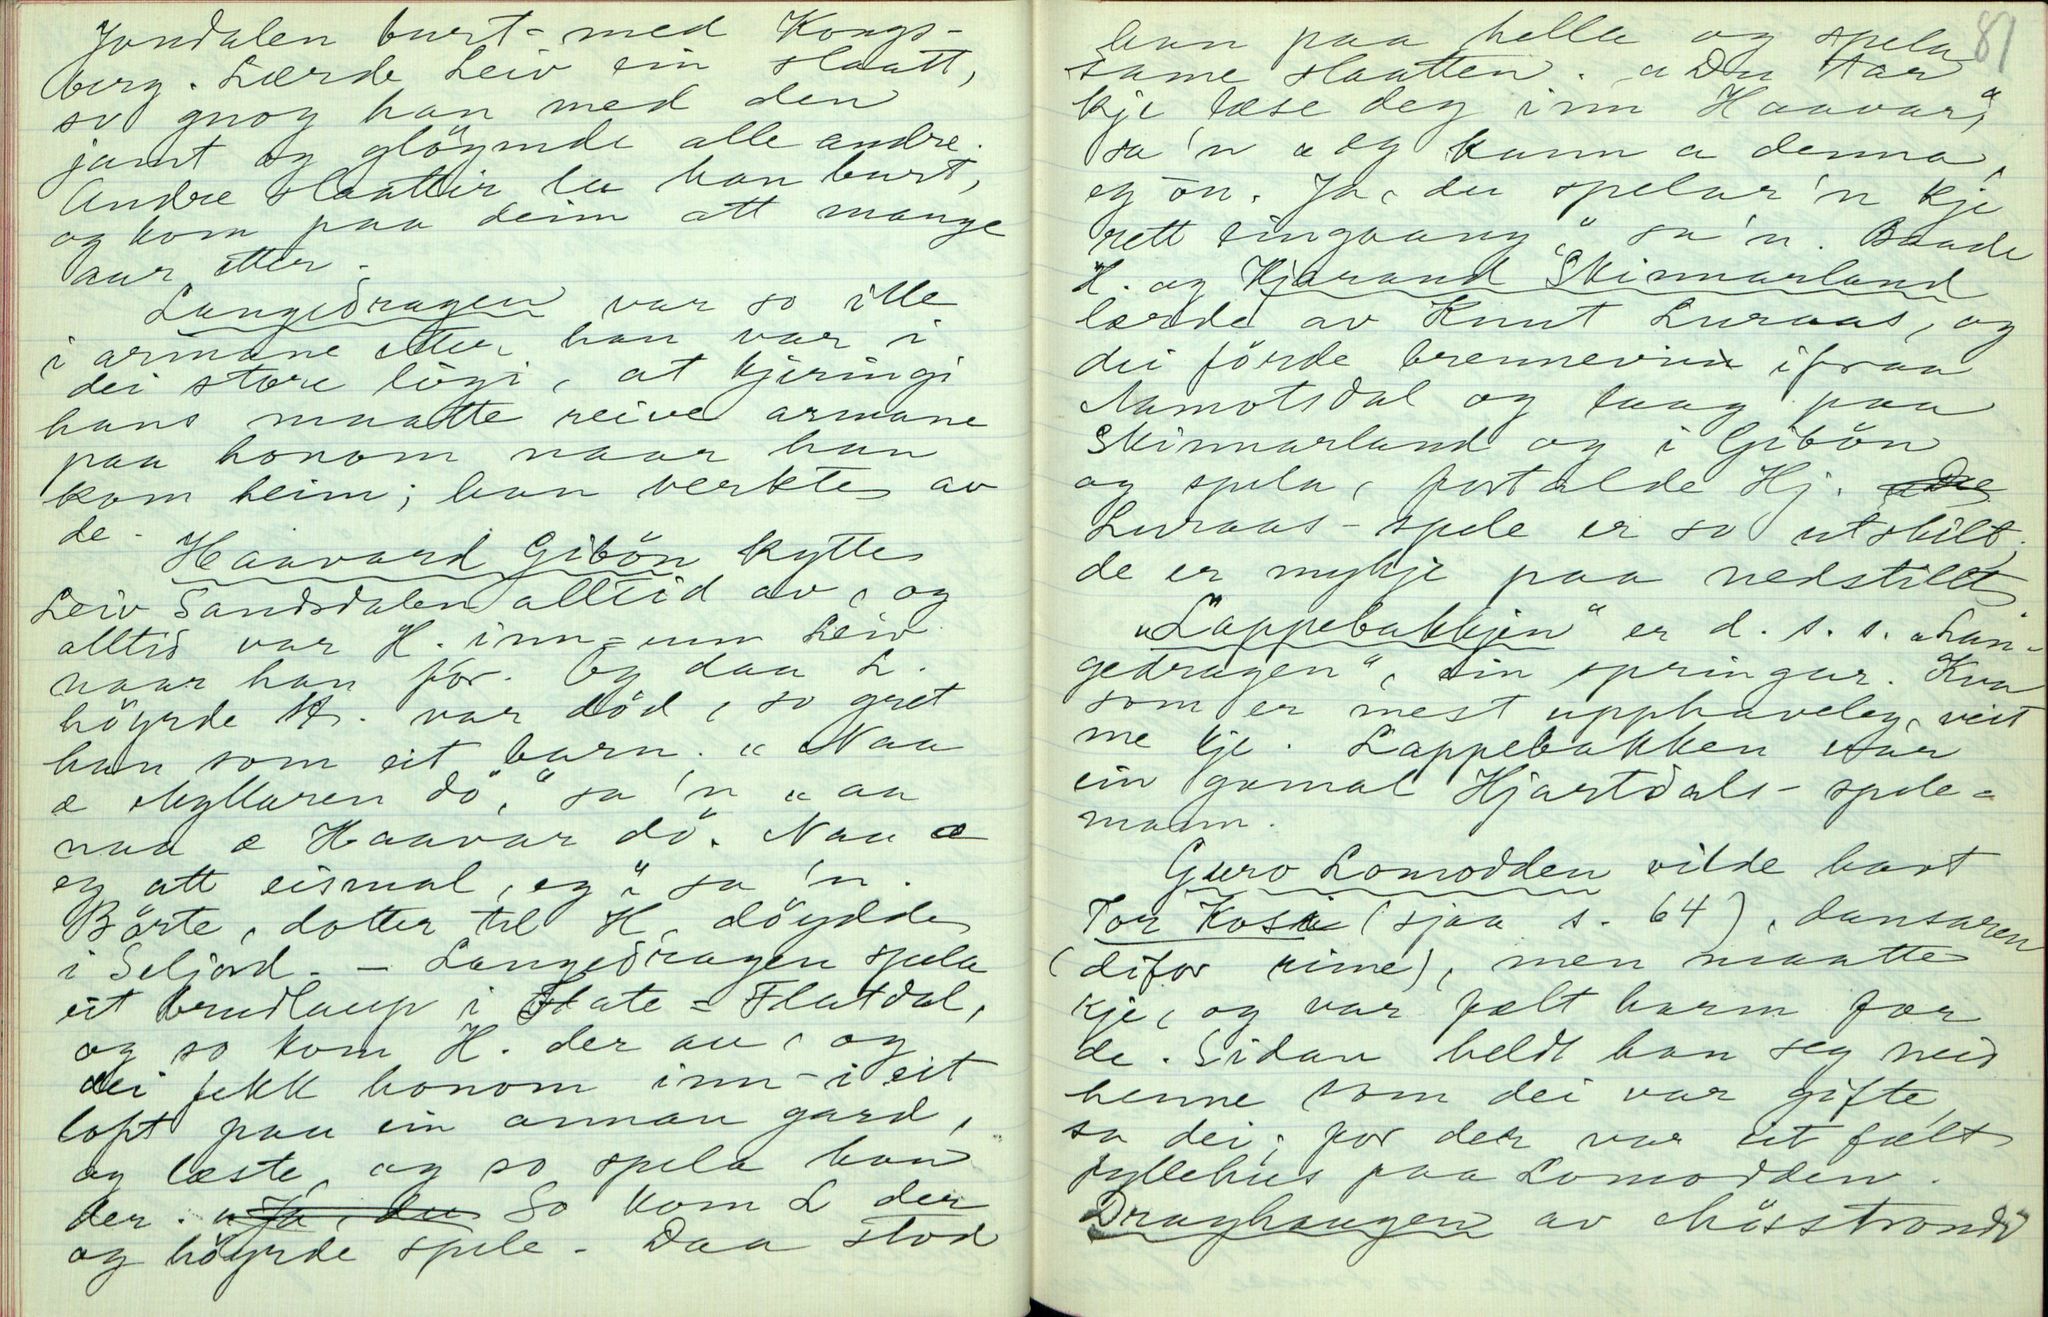 Jondalen burt-med Kongs-
berg. Lærde Leiv ein slaatt,
so gnog han med den
jamt og glöymde alle andre.
Andre slaattir la han burt,
og kom paa deim att mange
aar etter.
Langedragen var so ille
i armane etter han var i
dei store lögi, at kjeringi
hans maatte reive armane
paa honom naar han
kom heim; han verkte av
de.
Haavard Gibön kytte
Leiv Sandsdalen alltid av, og
alltid var H. inn-um Leiv
naar han för. Og daa L.
höyrde H. var död, so gret
han som eit barn. „Naa
æ Myllaren dö," sa 'n „aa
naa æ Haavar dö. Naa æ
eg att eismal, eg" sa 'n.
Börte, dotter til H. döydde
i Seljord. – Langedragen spela
eit brudlaup i Flate=Flatdal,
og so kom H. der au, og
dei fekk honom inn-i eit
loft paa ein annan gard,
og læste, og so spela han
der. „Ja, du So kom L der
og höyrde spele. Daa stod
87
han paa hella og spela
same slaatten. „Du tar
kje læse deg inn Haavar,"
sa 'n „eg kann a denna,
eg ön. Ja, du spelar 'n kje
rett eingaang" sa 'n. Baade
H. og Hjærand Skinnarland
lærde av Knut Luraas, og
dei förde brennevin ifraa
Namotsdal og laag paa
Skinnarland og i Gibön
og spela, fortalde Hj. „De
Luraas-spele er so utskilt,
de er mykje paa nedstillt
„Lappebakkjen" er d. s. s. „Lan-
gedragen", ein springar. Kva
som er mest upphaveleg, veit
me kje. Lappebakken var
ein gamal Hjartdals-spele=
mann.
Guro Lomodden vilde havt
Tor Kosi (sjaa s. 64), dansaren
(difor rime), men maatte
kje, og var fælt harm for
de. Sidan heldt han seg med
henne som dei var gifte,
sa dei; for der var eit fælt
fyllehus paa Lomodden.
Draghaugen av Mösstrondi